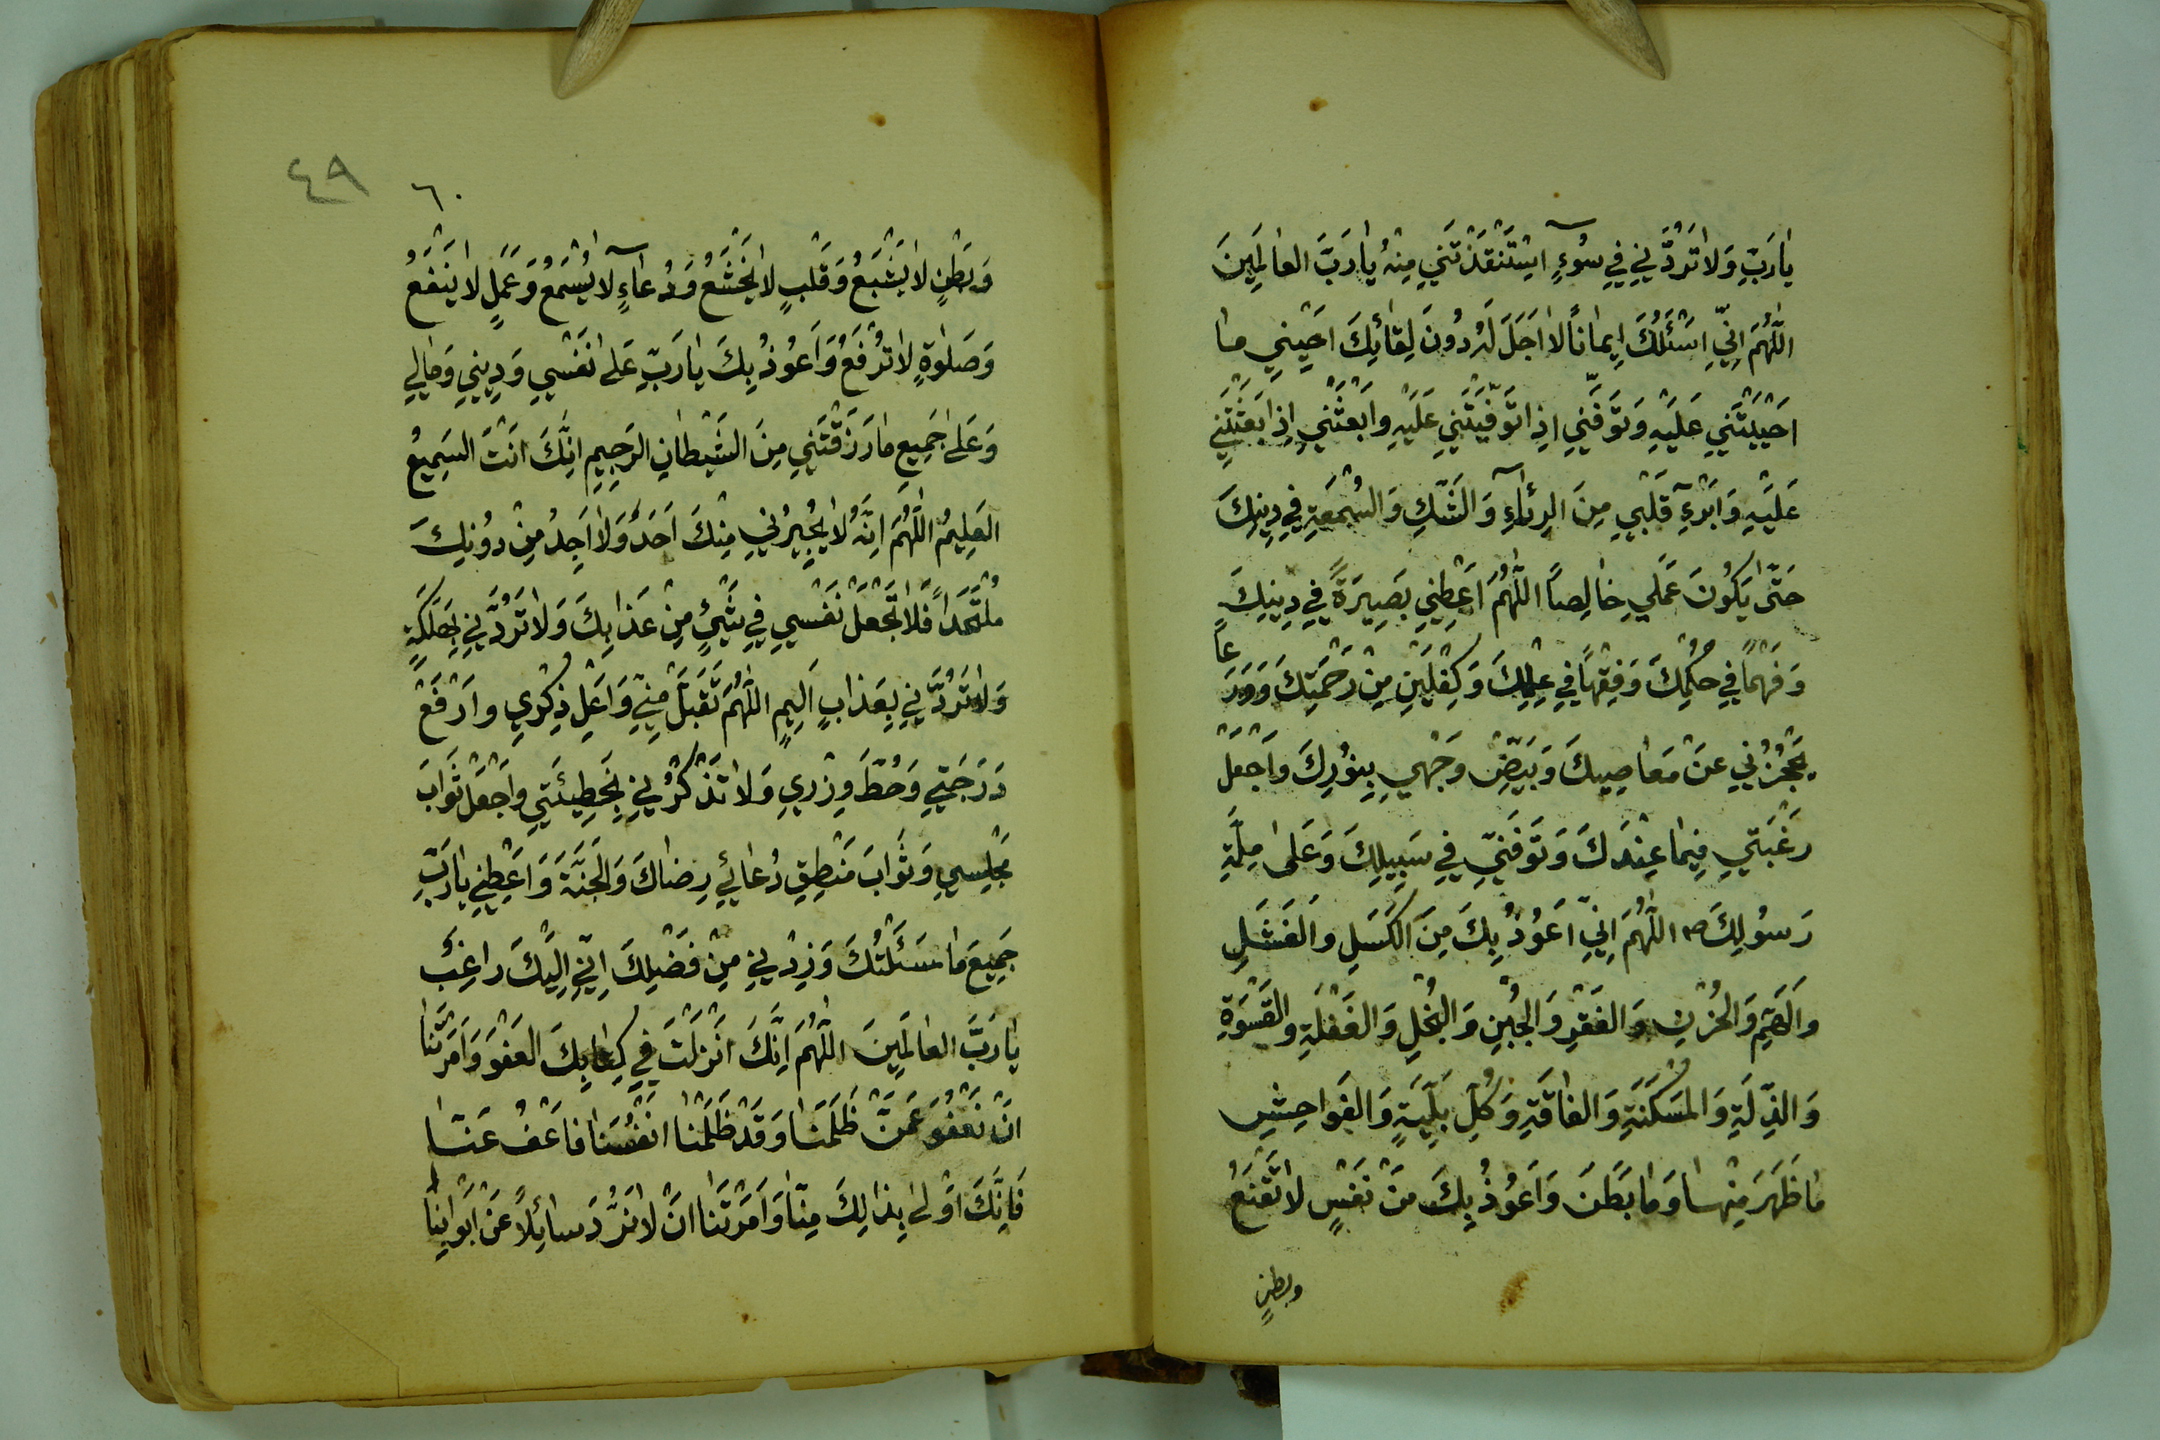 يٰا رَبِّ وَلٰا تَرُدَّنِي فِي سُوٓءٍ اسْتَنْقَذْتَنِي مِنْهُ يٰا رَبَّ العٰالَمِينَ
اللّٰهُمَ اِنِّي اَسْئَلُكَ اِيمٰانًا لاٰ اَجَلَ لَهُ دُونَ لِقٰائِكَ احْيِنِي مٰا
احْيَيْتَنِي عَلَيْهِ وَتَوَفَّنِي اِذٰا تَوَفَّيْتَنِي عَلَيْهِ وابْعَثْنِي اِذٰا بَعَثْتَنِي
عَلَيْهِ وَابْرِءْ قَلْبِي مِنَ الرِئٰاءِ وَالشَّكِ وَالسُمْعَةِ فِي دِينِكَ
حَتّٰى يَكُونَ عَمَلِي خٰالِصاً اللّٰهُمَ اَعْطِنِي بَصِيرَةً فِي دِينِكَ
وَفَهْماً فِي حُكْمِكَ وَفِقْهاً فِي عِلْمِكَ وَكِفْلَيْنِ مِنْ رَحْمَتِكَ وَوَرَعاً
يَحْجُزُنِي عَنْ مَعٰاصِيكَ وَبَيِّضْ وَجْهِي بِنُورِكَ وَاجْعَلْ
رَغْبَتِي فِيمٰا عِنْدَكَ وَتَوَفَّنِي فِي سَبِيلِكَ وَعَلىٰ مِلَّةِ
رَسُولِكَ ص اللّٰهُمَ اِنِّي اَعُوذُ بِكَ مِنَ الْكَسَلِ وَالفَشَلِ
وَالْهَمِّ وَالحُزْنِ وَالفَقْرِ وَالجُبْنِ وَالبُخْلِ وَالغَفْلَةِ وَالقَسْوَةِ
وَالذِّلَةِ وَالمَسْكَنَةِ وَالفٰاقَةِ وَكُلِّ بَلِيَّةٍ وَالفَوٰاحِشِ
مٰا ظَهَرَ مِنْهٰا وَمٰا بَطَنَ وَاَعُوذُ بِكَ مِنْ نَفْسٍ لاٰ تَقْنَعُ
وبطنٍ
٤٩
٦٠
وَبَطْنٍ لاٰ يَشْبَعُ وَقَلْبٍ لاٰ يَخْشَعُ وَدُعٰاءٍ لاٰ يُسْمَعُ وَعَمَلٍ لاٰ يَنْفَعُ
وَصَلٰوةٍ لاٰ تُرْفَعُ وَاَعُوذُ بِكَ يٰا رَبِّ عَلىٰ نَفْسِي وَدِينِي وَمٰالِي
وَعَلىٰ جَمِيعِ مٰا رَزَقْتَنِي مِنَ الشَّيْطٰانِ الرَجِيمِ اِنَّكَ انْتَ السَمِيعُ
العَلِيمُ اللّٰهُمَ اِنَّهُ لاٰ يُجِيرُنِي مِنْكَ اَحَدٌ وَلاٰ اَجِدُ مِنْ دُونِكَ
مُلْتَحَداً فَلاٰ تَجْعَلْ نَفْسِي فِي شَيْءٍ مِنْ عَذٰابِكَ وَلاٰ تَرُدَّنِي بِهَلَكَةٍ
وَلاٰ تَرُدَّنِي بِعَذٰابٍ اَلِيمٍ اللّٰهُمَ تَقَبَّلْ مِنِّي وَاَعْلِ ذِكْرِي وارْفَعْ
دَرَجَتِي وَحُطَّ وِزْرِي وَلاٰ تَذْكُرْنِي بِخَطِيئَتِي وَاجْعَلْ ثَوٰابَ
مَجْلِسِي وَثَوٰابَ مَنْطِقِي دُعٰائِي رِضٰاكَ وَالْجَنَّةَ وَاَعْطِنِي يٰا رَبِّ
جَمِيعَ مٰا سَئَلْتُكَ وَزِدْنِي مِنْ فَضْلِكَ اِنِّي اِلَيْكَ رٰاغِبٌ
يٰا رَبَّ العٰالَمِينَ اللّٰهُمَ اِنَّكَ اَنْزَلْتَ فِي كِتٰابِكَ العَفْوَ وَاَمَرْتَنٰا
انْ نَعْفُوَ عَمَّنْ ظَلَمَنٰا وَقَدْ ظَلَمْنٰا انْفُسَنٰا فٰاعْفُ عَنّٰا
فَاِنَّكَ اوْلىٰ بِذٰالِكَ مِنّٰا وَاَمَرْتَنٰا انْ لاٰ نَرُدَّ سٰائِلاً عَنْ ابْوٰابِنٰا